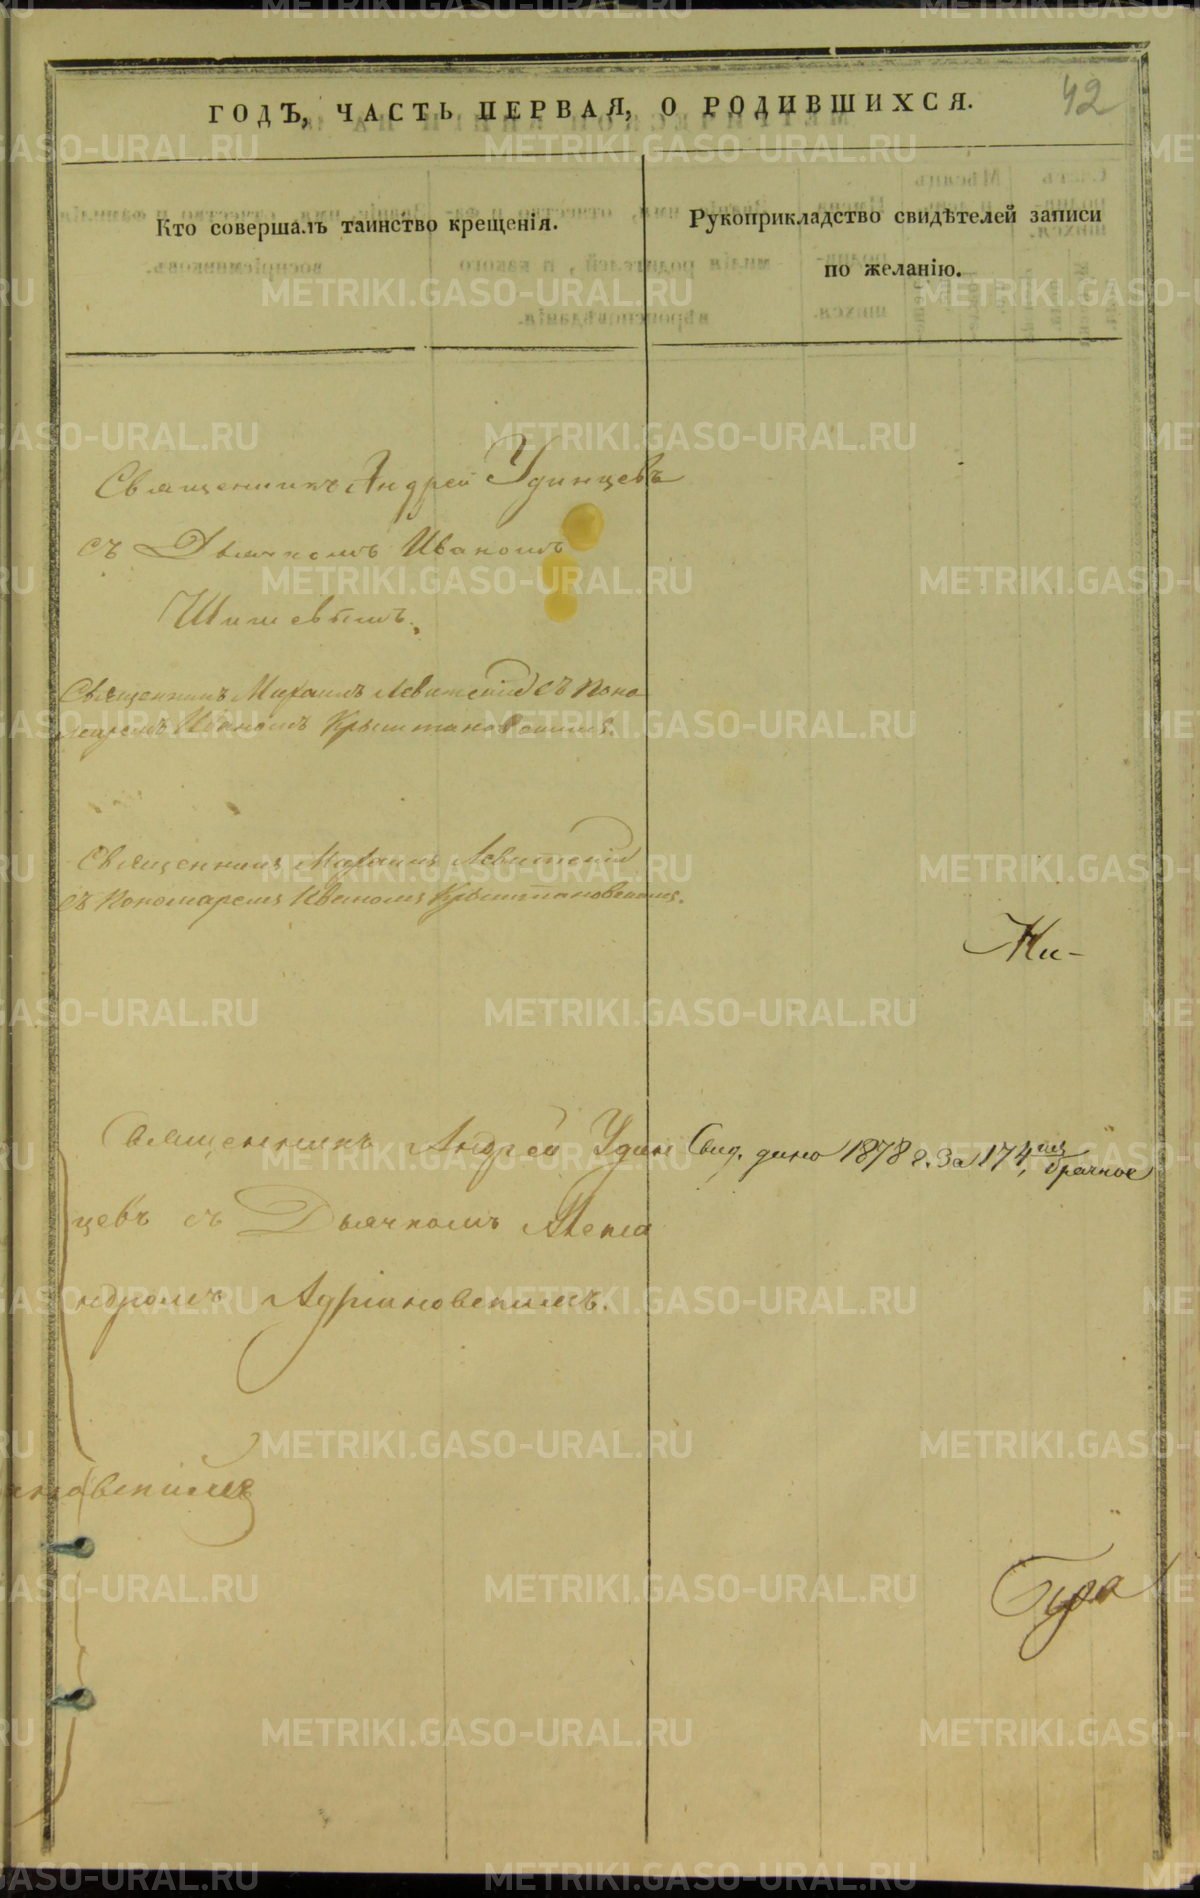 42
ГОДЪ, ЧАСТЬ ПЕРВАЯ, О РОДИВШИХСЯ.
Кто совершалъ таинство крещенія.
Рукоприкладство свидѣтелей записи
по желанію.
Священникъ Андрей Удинцевъ
съ Дьячкомъ Иваномъ
Шишевымъ.
Священникъ Михаилъ Левитскій съ Поно
маремъ Иваномъ Крыштановскимъ.
Священникъ Михаилъ Левитскій
съ Пономаремъ Иваномъ Крыштановскимъ.
Ки-
Священникъ Андрей Удин
цевъ съ Дьячкомъ Алекса
ндромъ Адріановскимъ.
Свид. дано 1878 г. За 174, брачное
новскимъ
METRIKI.GASO-URAL.RU